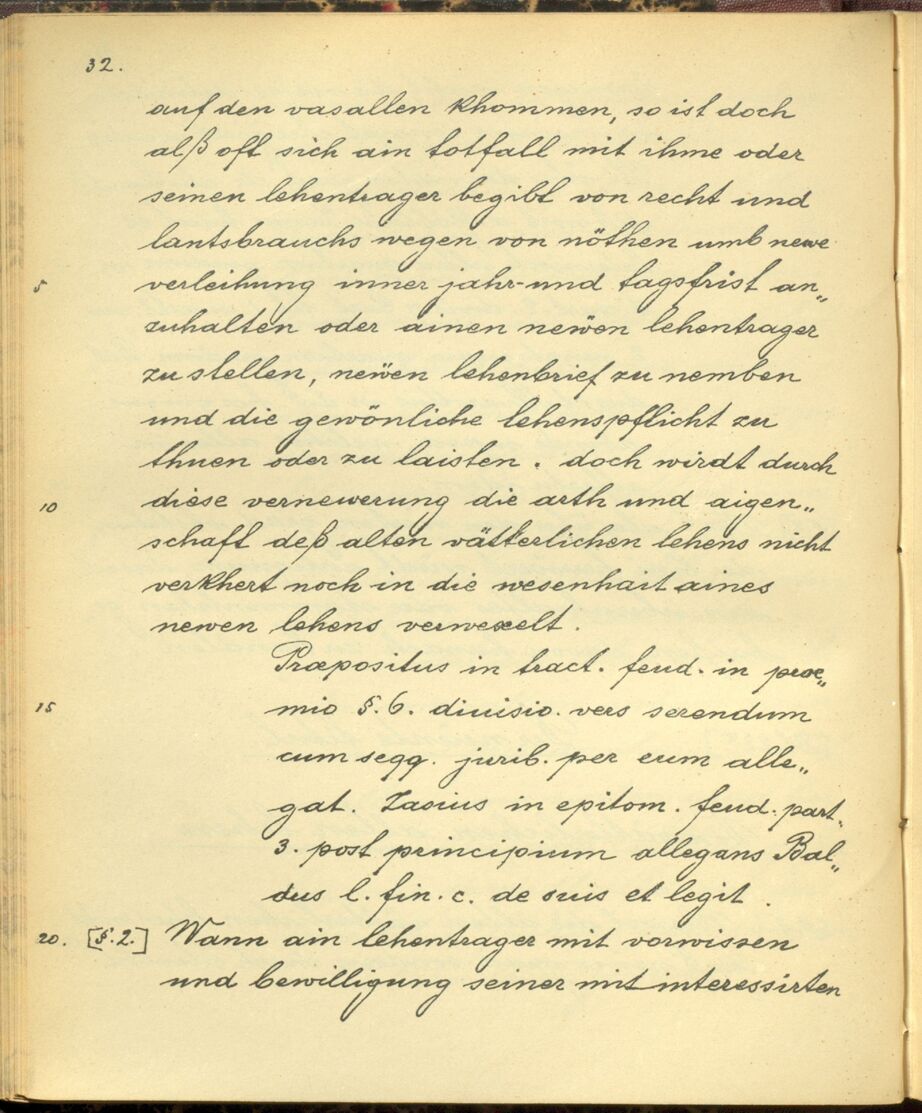 32.
auf den vasallen khommen, so ist doch
alß oft sich ain totfall mit ihme oder
seinen lehentrager begibt von recht und
lantsbrauchs wegen von nöthen umb newe
5 verleihung inner jahr- und tagsfrist an„
zuhalten oder ainen neẅen lehentrager
zu stellen, neẅen lehenbrief zu nemben
und die gewönliche lehenspflicht zu
thuen oder zu laisten. doch wirdt durch
10 diese vernewerung die arth und aigen„
schaft deß alten vätterlichen lehens nicht
verkhert noch in die wesenhait aines
newen lehens verwexelt.
Præpositus in tract. feud. in proe„
15 mio §. 6. diuisio. vers serendum
cum segg. jurib. per eum alle„
gat. Zasius in epitom. feud. part.
3. post principium allegans Bal„
dus l. fin. c. de suis et legit.
20. [§. 2.] Wann ain lehentrager mit vorwissen
und bewilligung seiner mit interessirten